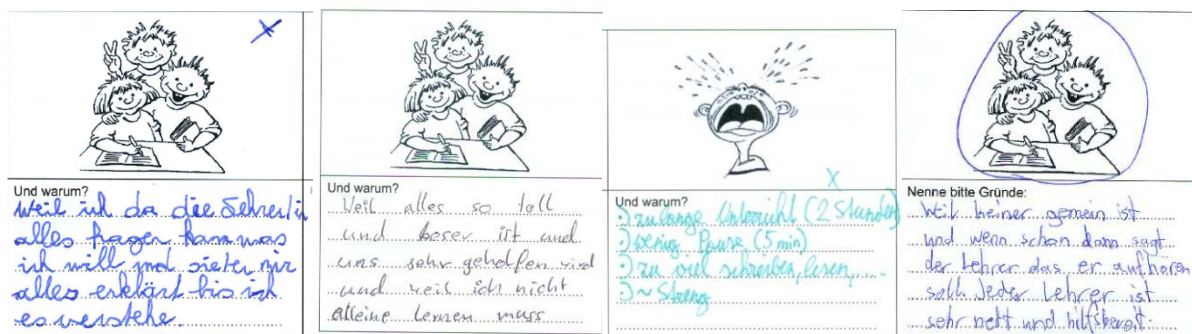 Und warum?
Weil ich da die Lehrerin
alles fragen kann was
ich will und sie
alles erklärt bis ich
es verstehe.
Und warum?
Weil alles so toll
und beser ist und
uns sehr geholfen wird
und weil ich nicht
alleine lernen muss
Und warum?
:) zu lange Unterricht (2 Stunden)
:) wenig Pause (5 min)
:) zu viel schreiben, lesen,....
:) ~ Streng
Nenne bitte Gründe:
Weil keiner gemein ist
und wenn schon dann sagt
der Lehrer das er aufhören
soll. Jeder Lehrer ist
sehr nett und hilfsbereit.